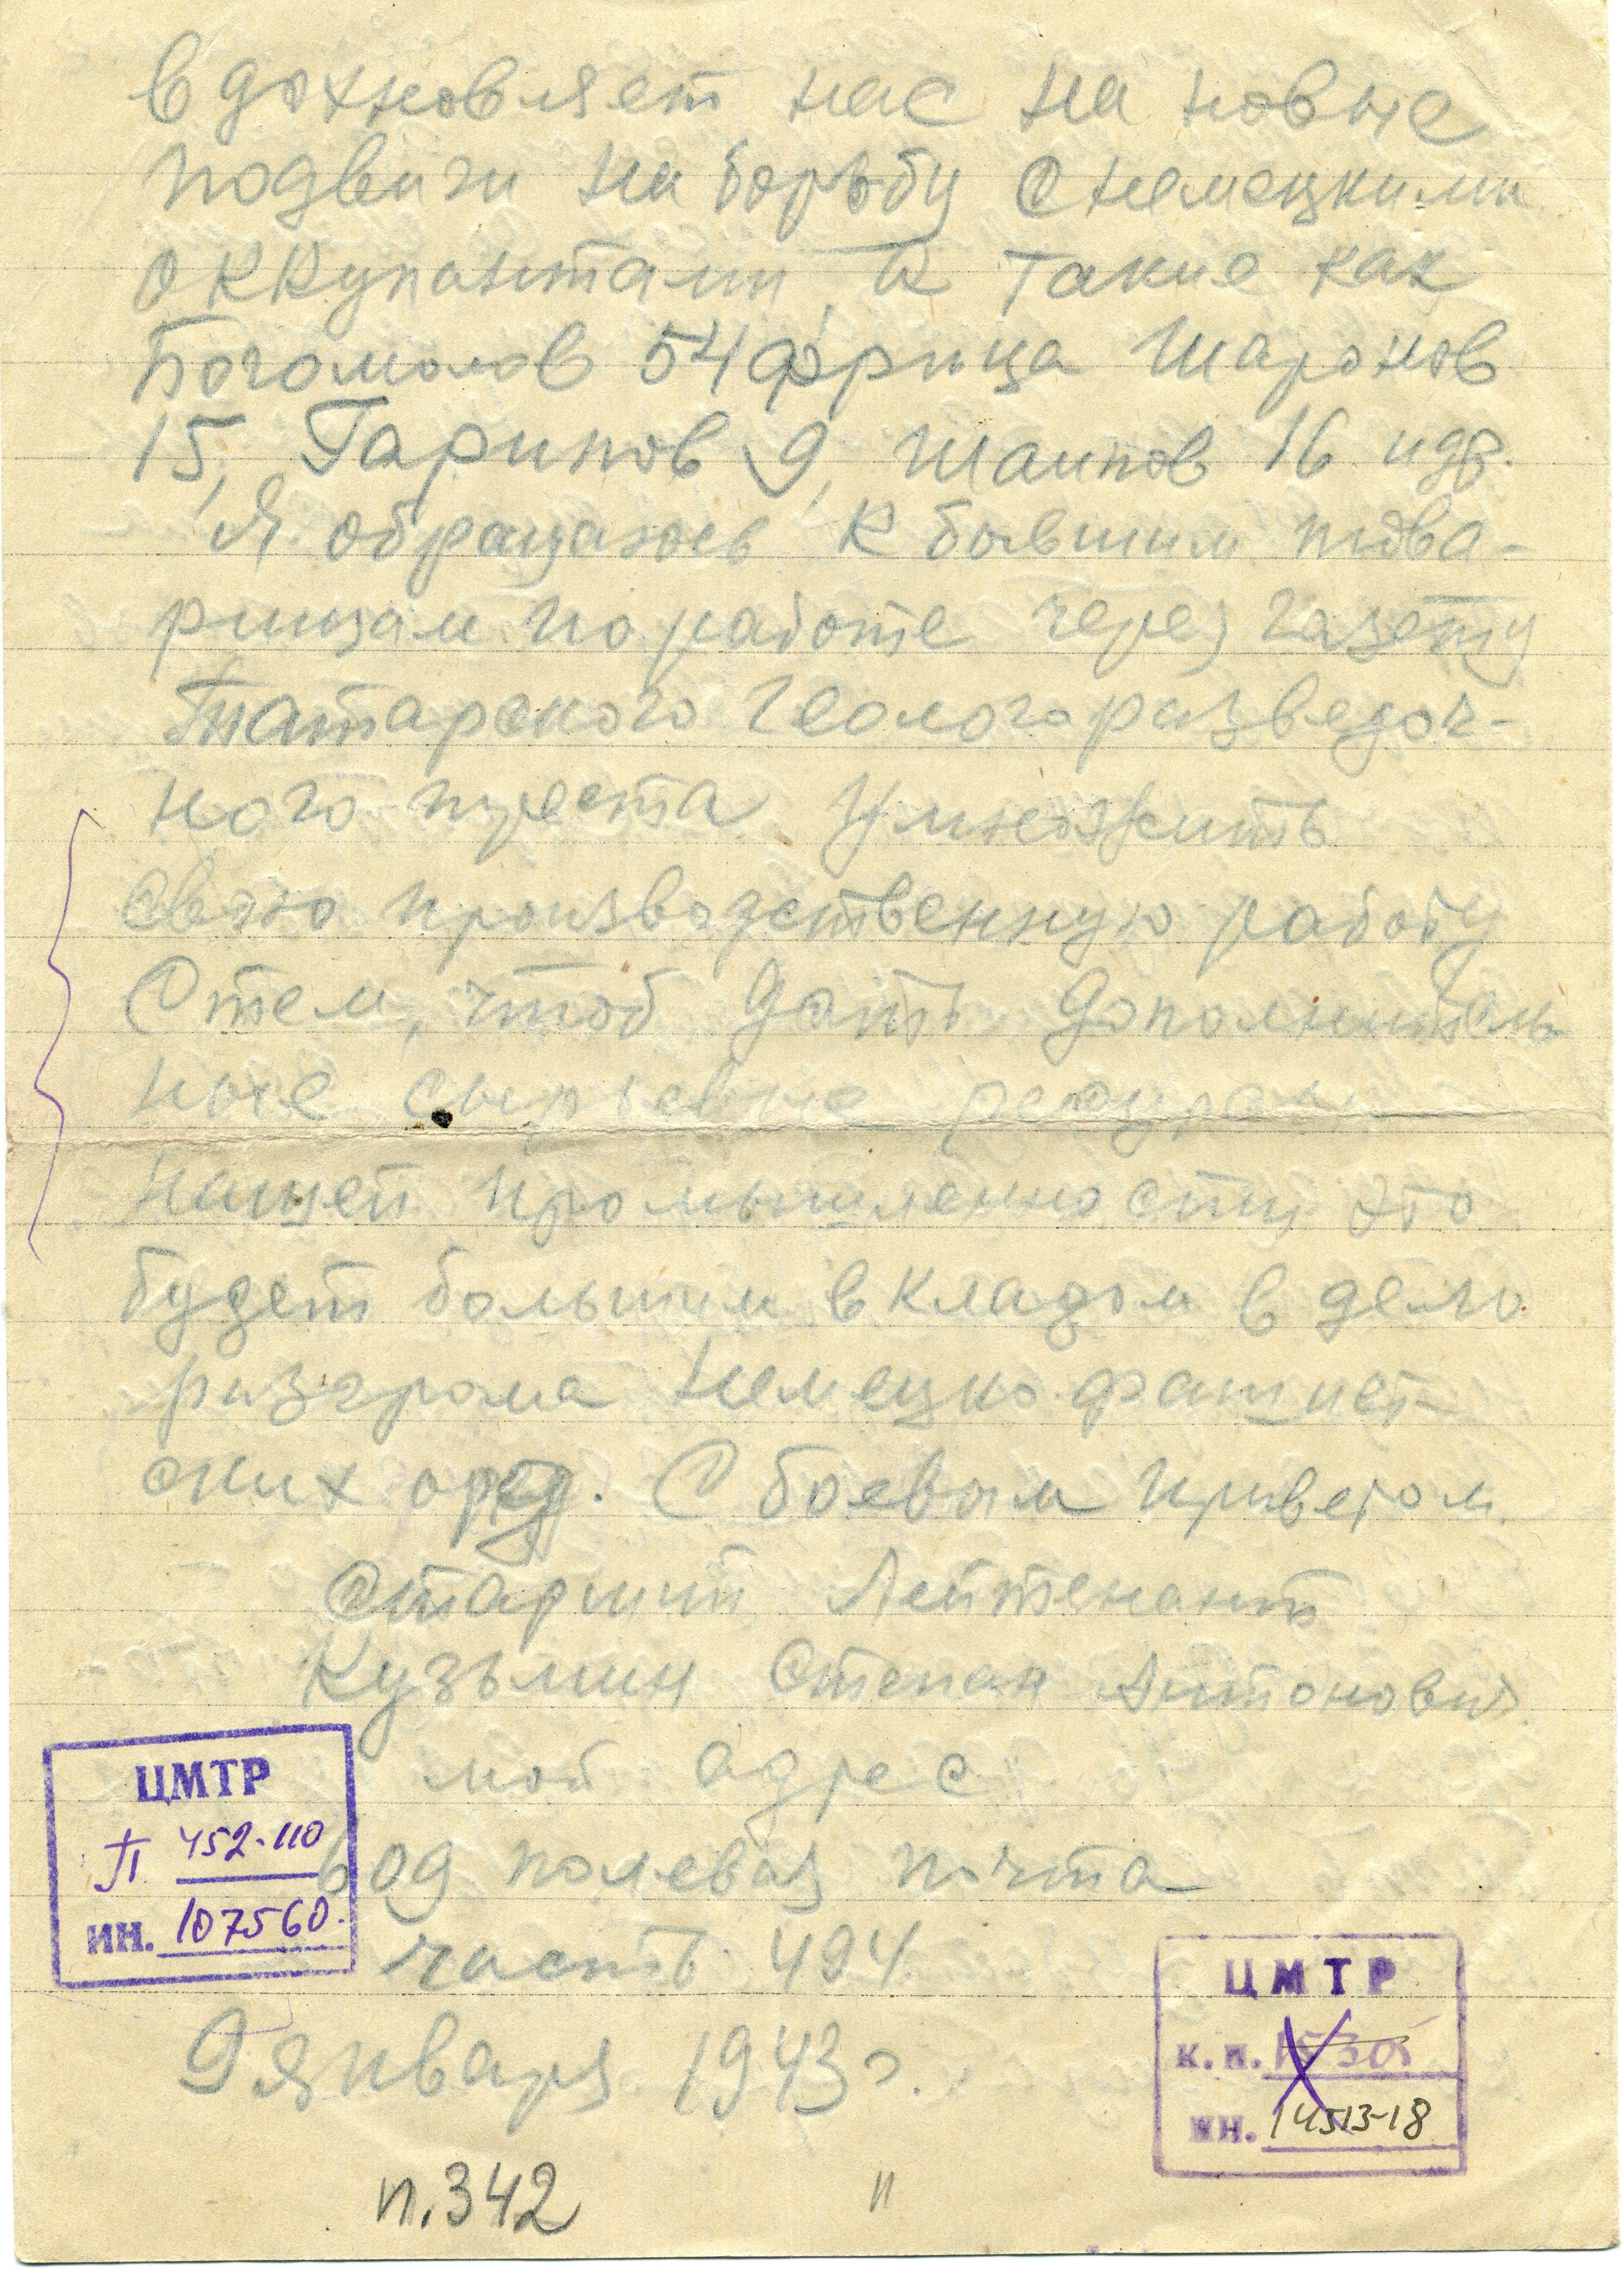 вдохновляет нас на новые
подвиги на борьбу с немецкими
оккупантами, и такие как
Богомолов 54 фрица Шаронов
15, Гарипов 9, Шаипов 16 и др.
Я обращаюсь к бывшим това-
рищам по работе через газету
Татарского Геологоразведоч-
ного треста умножить
свою производственную работу
С тем, чтоб дать дополнитель
ные сырьевые ресурсы
нашей промышленности, это
будет большим вкладом в дело
разгрома немецко фашист-
ских орд. С боевым приветом.
Старший Лейтенант
Кузьмин Степан Антонович.
мой адрес
609 полевая почта
часть 494
9 января 1943 г.
ЦМТР
П 452-110
ИН. 107560.
ЦМТР
К.П. 15305
ИН. 14513-18
п. 342